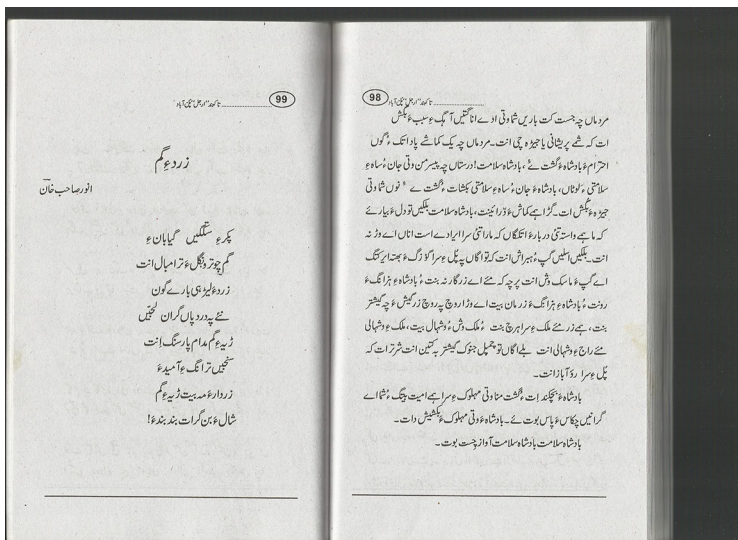 98
مردماں چہ جست کت باریں شما وتی ادے اناگتیں آہگ ءِ سبب ءَ بکش
ات کہ شمے پریشانی یا جیڑہ چی انت۔ مردماں چہ یک کماشے پاداتک ءُ گوں
احترام ءَ بادشاہ ءَ گشت ئے، بادشاہ سلامت! درستاں چہ پیسر من وتی جان ءُ ساہ ءِ
سلامتی ءَ لوٹاں، بادشاہ ءَ جان ءُ ساہ ءِ سلامتی بکشات ءُ گشت ئے نوں شما وتی
جیڑہ ءَ بکش ات۔ گڑا ہمے کماش ءَ درّائینت، بادشاہ سلامت بلکیں تو دل ءَ بیارئے
کہ ما ہمے واستہ تئی دربار ءَ اتکگاں کہ مارا تئی سرا ایرادے است اناں اے وڑ نہ
انت۔ بلکیں اسلیں گپ ءُ ہبر اش انت کہ تو اگاں پہ پُل ءِ سرا گؤزگ ءَ بھتہ ایر کتگ
اے گپ ءَ ماسک وش انت پرچہ کہ مئے اے زر گار نہ بنت ءُ بادشاہ ءِ ہزانگ ءَ
رونت ءُ بادشاہ ءِ ہزانگ ءَ زرماں بیت اے وڑا روچ پہ روچ زر گیش ءَ چہ گیشتر
بنت، ہمے زر مئے ملک ءِ سرا ہرچ بنت ءُ ملک وش ءُ وشہال بیت، ملک ءِ وشہالی
مئے راج ءِ وشہالی انت بلے اگاں تو چمپل جنوک گیشتر بہ کتین انت شرتر ات کہ
پُل ءِ سرا ردّ آباز انت۔
بادشاہ ءَ بچکند اِت ءُ گشت منا وتی مہلوک ءِ سرا ہمے امیت پیتگ ءُ شما اے
گرانیں چکاس ءَ پاس بوت ئے۔ بادشاہ ءَ وتی مہلوک ءَ بکشیش دات۔
بادشاہ سلامت بادشاہ سلامت آواز چست بوت۔
99
زرد ءِ گم
انور صاحب خان
پکر ءِ ستگیں گیابان ءِ
گم چو ترونگل ءَ ترامپال انت
زرد ءَ لیڑھی بارے گون
نئے پہ درد پاں گران لحیّں
ڑیہ ءِ گم مدام پارسنگ اِنت
سنجیں ترانگ ءِ آمید ءَ
زردار ءَ مہ بیت ڑیہ ءِ گم
شال ءَ بن گرات بند بند ءَ!